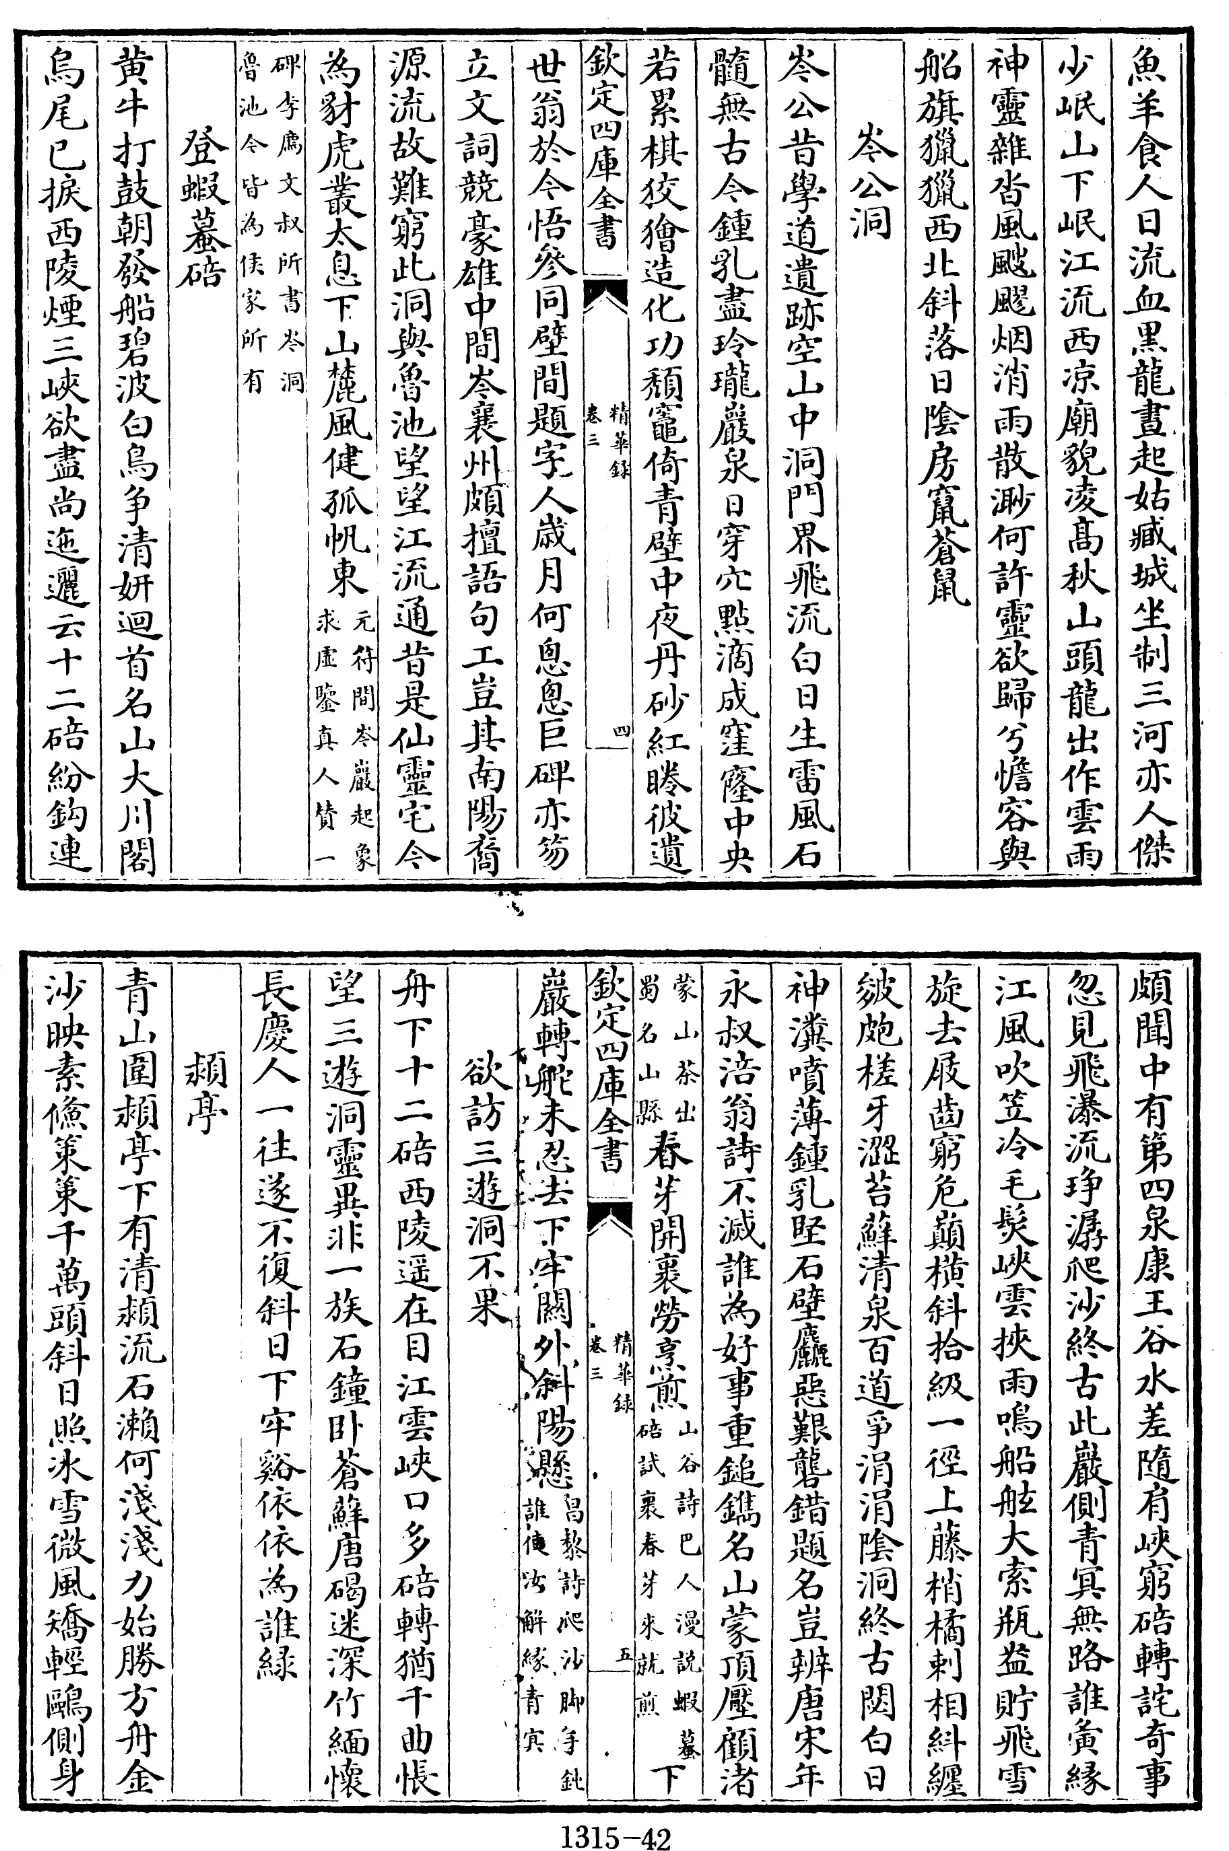 魚羊食人日流血黑龍晝起姑臧城坐制三河亦人傑
少岷山下岷江流西凉廟貌凌高秋山頭龍出作雲雨
神靈雜沓風颼飀烟消雨散渺何許靈欲歸兮憺容與
船旗獵獵西北斜落日陰房竄蒼鼠
岑公洞
岑公昔學道遺跡空山中洞門界飛流白日生雷風石
髓無古今鍾乳盡玲瓏巖泉日穿穴點滴成窪窿中央
若累棋狡獪造化功頽竈倚青壁中夜丹砂紅睠彼遺
欽定四庫全書
精華録
卷三
四
世翁於今悟參同壁間題字人歲月何悤悤巨碑亦笏
立文詞競豪雄中間岑襄州頗擅語句工豈其南陽裔
源流故難窮此洞與魯池望望江流通昔是仙靈宅今
為豺虎叢太息下山麓風健孤帆東元符間岑巖起象
求虛鑒真人贊一
碑李廌文叔所書岑洞
魯池今皆為侯家所有
登蝦蟇碚
黄牛打鼓朝發船碧波白鳥争清妍迴首名山大川閣
烏尾已捩西陵煙三峽欲盡尚迤邐云十二碚紛鈎連
頗聞中有第四泉康王谷水差隨肩峽窮碚轉詫奇事
忽見飛瀑流琤潺爬沙終古此巖側青冥無路誰夤緣
江風吹笠冷毛髮峽雲挾雨鳴船舷大索瓶盎貯飛雪
旋去屐齒窮危巔横斜拾級一徑上藤梢橘刺相糾纏
皴皰槎牙澀苔蘚清泉百道爭涓涓陰洞終古閟白日
神瀵噴薄鍾乳堅石壁麤惡艱礱錯題名豈辨唐宋年
永叔涪翁詩不滅誰為好事重鎚鐫名山蒙頂壓顧渚
蒙山茶出
蜀名山縣春芽開裹勞烹煎山谷詩巴人漫說蝦蟇
碚試裹春芽來就煎下
欽定四庫全書
精華録
卷三
五
巖轉舵未忍去下牢關外斜陽懸昌黎詩爬沙脚手鈍
誰使汝解緣青冥
欲訪三遊洞不果
舟下十二碚西陵遥在目江雲峽口多碚轉猶千曲悵
望三遊洞靈異非一族石鐘卧蒼蘚唐碣迷深竹緬懷
長慶人一往遂不復斜日下牢谿依依為誰緑
頫亭
青山圍頫亭下有清頫流石瀨何淺淺力始勝方舟金
沙映素鯈策策千萬頭斜日照冰雪微風矯輕鷗側身
1315-42